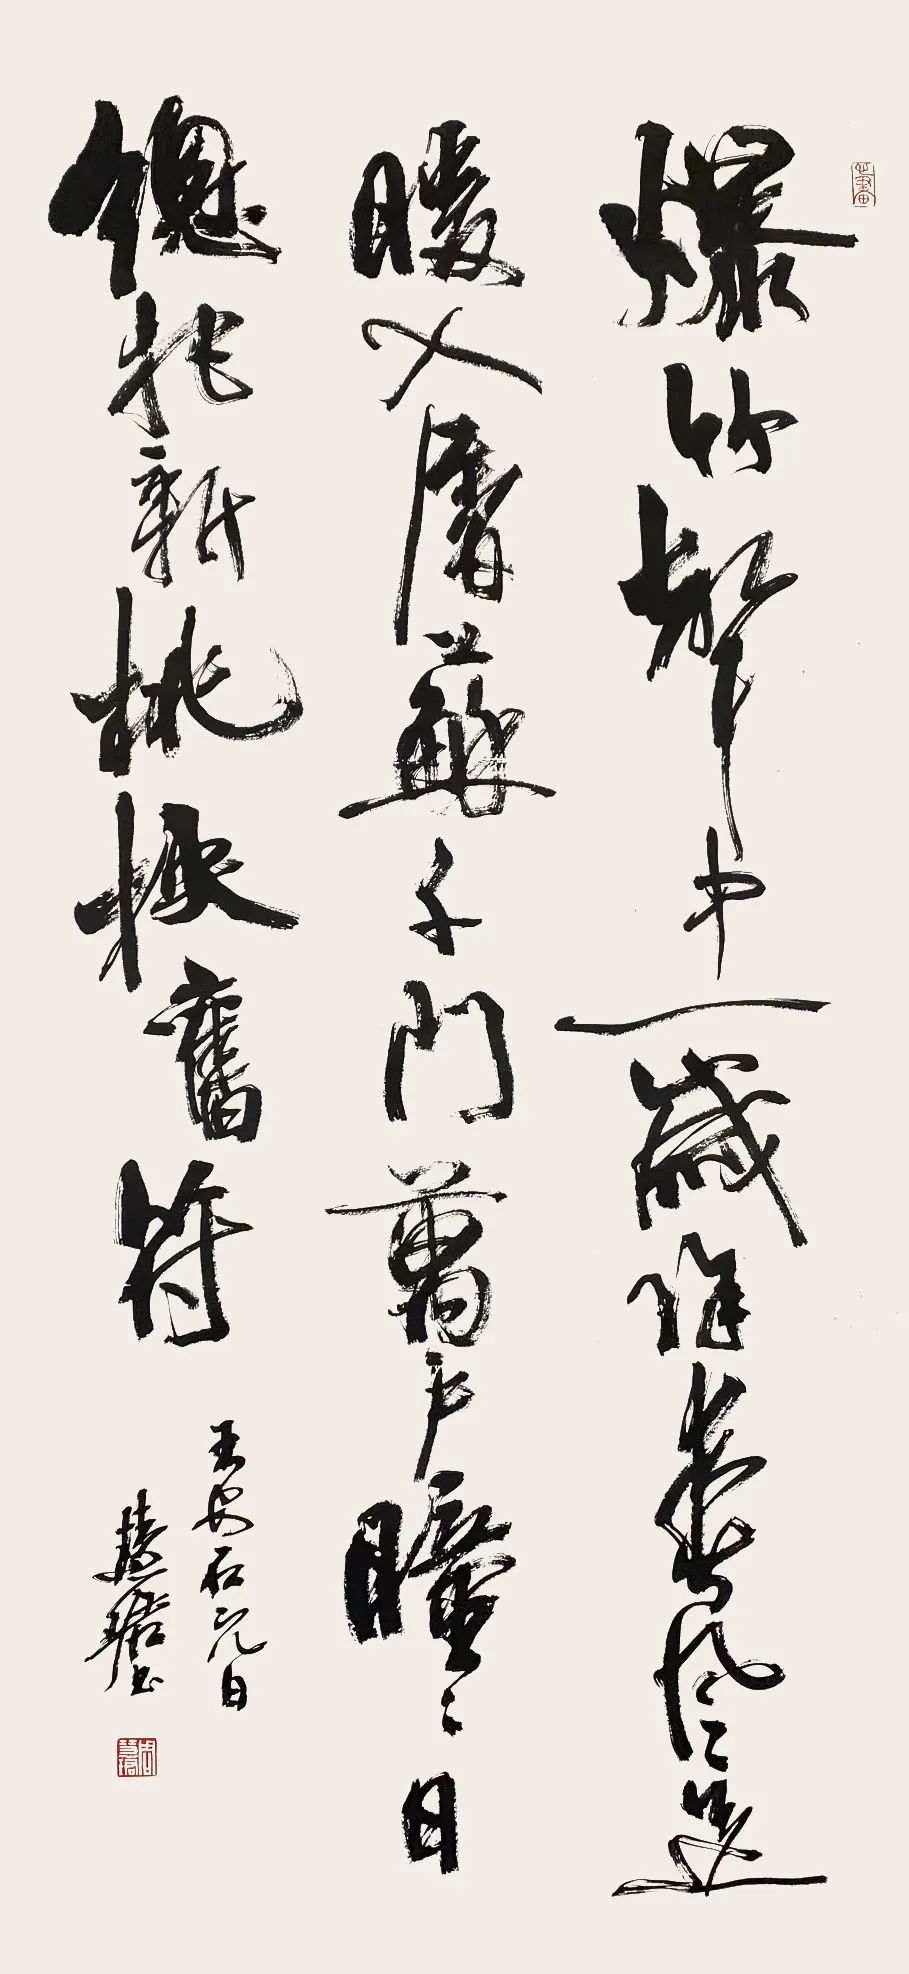 爆竹聲中一歲除春風送
暖入屠蘇千門萬戶曈〻日
總把新桃換舊符
王安石元日
慧珺書
周慧珺